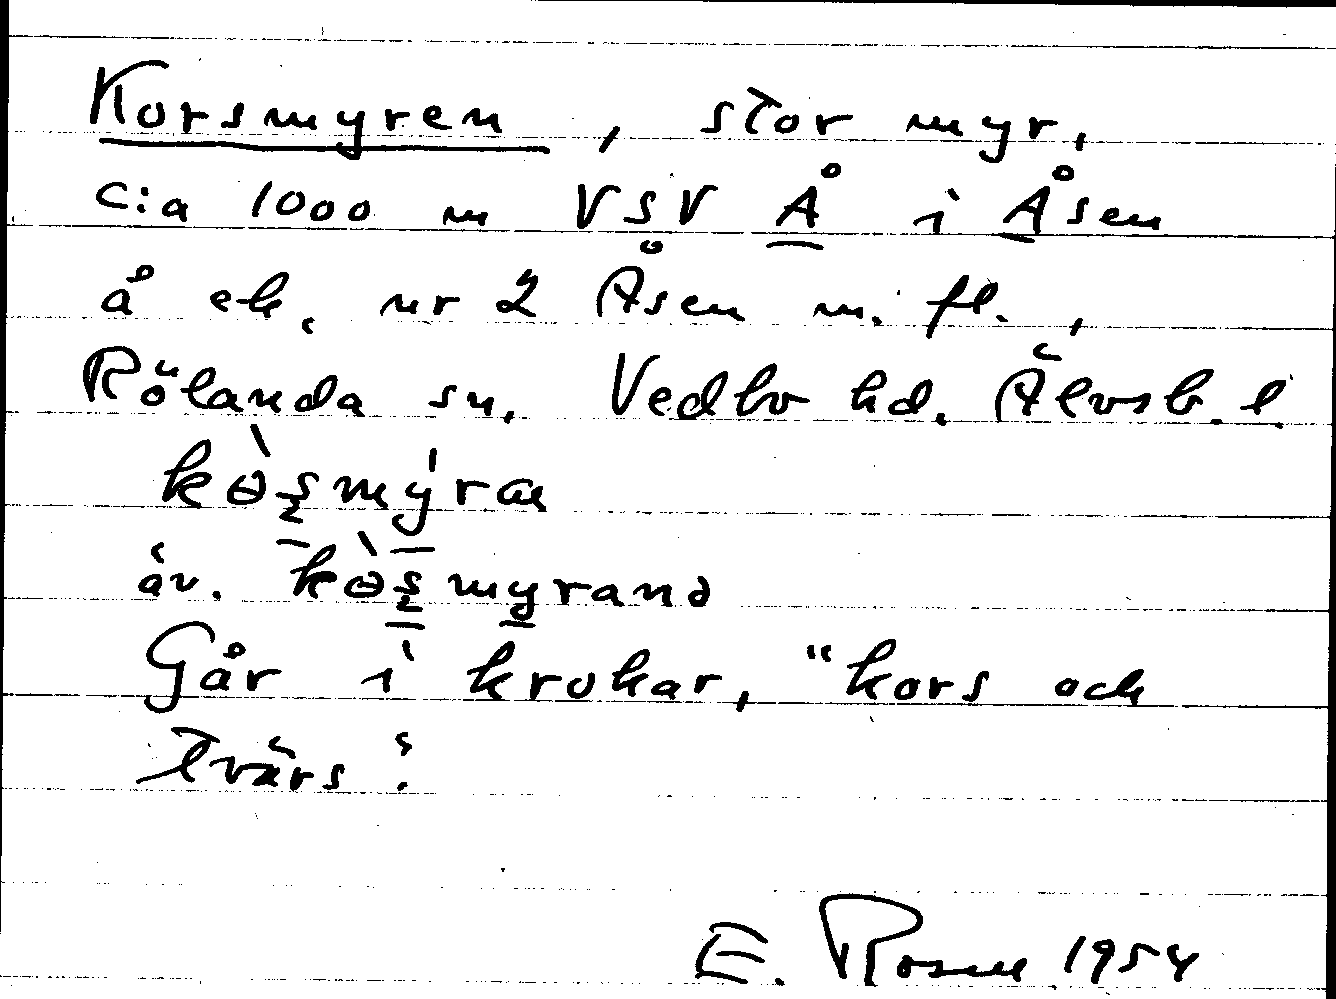 Korsmyren, stor myr,
c:a 1000 m VSV Å i Åsen
å ek. nr 2 Åsen m. fl.,
Rölanda sn. Vedbo hd. Älvsb. l.
kòs̠myra
äv. kòs̠my̠rand
Går i krokar, "kors och
tvärs".
E. Rosell 1954